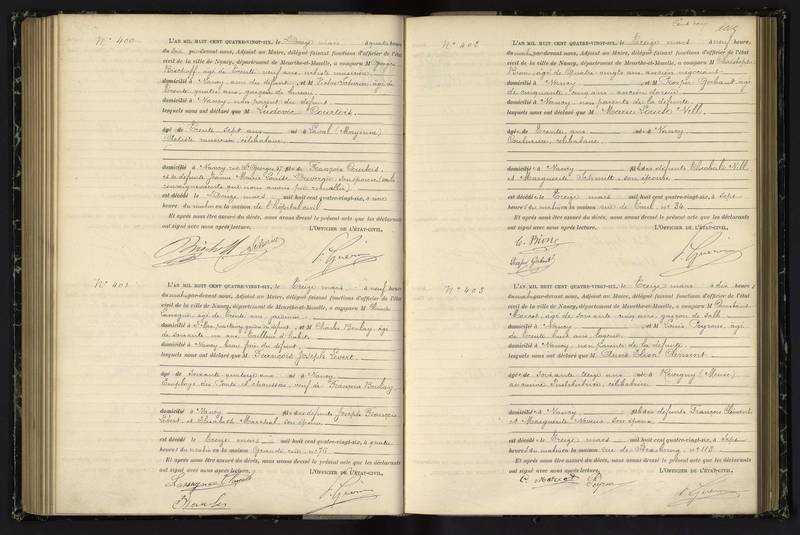 N° 400
L'AN MIL HUIT CENT QUATRE-VINGT-SIX, le Douze mars à quatre heures
du soir par-devant nous, Adjoint au Maire, délégué faisant fonctions d'officier de l'état
civil de la ville de Nancy, département de Meurthe-et-Moselle, a comparu M
Bischoff, âgé de trente neuf ans, artiste musicien
domicilié à Nancy, ami du défunt, et M
trente quatre ans, garçon de bureau
domicilié à Nancy non parent du défunt
lesquels nous ont déclaré que M Ludovic Courtois
âgé de trente sept ans né à Laval (Mayenne)
Artiste musicien, célibataire
domicilié à Nancy, rue St Georges fils de François Courtois
et de défunte Jeanne Marie Louise son épouse
renseignements que nous avons pu recueillir)
est décédé le Douze mars mil huit cent quatre-vingt-six, à une
heure du matin en la maison de l'hôpital civil
Et après nous être assuré du décès, nous avons dressé le présent acte que les déclarants
ont signé avec nous après lecture. L'OFFICIER DE L'ÉTAT-CIVIL,
Bischoff
N° 401
L'AN MIL HUIT CENT QUATRE-VINGT-SIX, le Treize mars à neuf heures
du matin par-devant nous, Adjoint au Maire, délégué faisant fonctions d'officier de l'état
civil de la ville de Nancy, département de Meurthe-et-Moselle, a comparu M
âgé de trente ans
domicilié à et M Charles Boulay, âgé
de soixante un ans, tailleur d'habits
domicilié à Nancy, beau frère du défunt
lesquels nous ont déclaré que M François Joseph Levert
âgé de soixante quatorze ans né à Nancy
Employé des Ponts et chaussées, veuf de Françoise Boulay
domicilié à Nancy fils des défunts Joseph François
Levert, et Elisabeth Maréchal son épouse
est décédé le Treize mars mil huit cent quatre-vingt-six, à quatre
heures du matin en la maison Grande rue n° 76
Et après nous être assuré du décès, nous avons dressé le présent acte que les déclarants
ont signé avec nous après lecture. L'OFFICIER DE L'ÉTAT-CIVIL,
N° 402
L'AN MIL HUIT CENT QUATRE-VINGT-SIX, le Treize mars à neuf heures
du matin par-devant nous, Adjoint au Maire, délégué faisant fonctions d'officier de l'état
civil de la ville de Nancy, département de Meurthe-et-Moselle, a comparu M Christophe
Bron, âgé de quatre vingts ans, ancien négociant
domicilié à Nancy et M Prosper âgé
de cinquante cinq ans, ancien
domicilié à Nancy, non parents de la défunte
lesquels nous ont déclaré que M Marie Louise Nell
âgée de trente ans née à Nancy
Couturière, célibataire
domiciliée à Nancy fille des défunts Nell
et Marguerite Schmitt, son épouse
est décédée le Treize mars mil huit cent quatre-vingt-six, à sept
heures du matin en la maison rue de n° 34
Et après nous être assuré du décès, nous avons dressé le présent acte que les déclarants
ont signé avec nous après lecture. L'OFFICIER DE L'ÉTAT-CIVIL,
N° 403
L'AN MIL HUIT CENT QUATRE-VINGT-SIX, le Treize mars à dix heures
du matin par-devant nous, Adjoint au Maire, délégué faisant fonctions d'officier de l'état
civil de la ville de Nancy, département de Meurthe-et-Moselle, a comparu M
Marcot, âgé de soixante cinq ans, garçon de salle
domicilié à Nancy et M Louis Peyron, âgé
de trente ans
domicilié à Nancy, non parents de la défunte
lesquels nous ont déclaré que M Clément
âgée de soixante treize ans née à Revigny (Meuse)
ancienne Institutrice, célibataire
domiciliée à Nancy fille des défunts François Clément
et Marguerite son épouse
est décédée le Treize mars mil huit cent quatre-vingt-six, à sept
heures du matin en la maison rue de Strasbourg n° 113
Et après nous être assuré du décès, nous avons dressé le présent acte que les déclarants
ont signé avec nous après lecture. L'OFFICIER DE L'ÉTAT-CIVIL,
Marcot